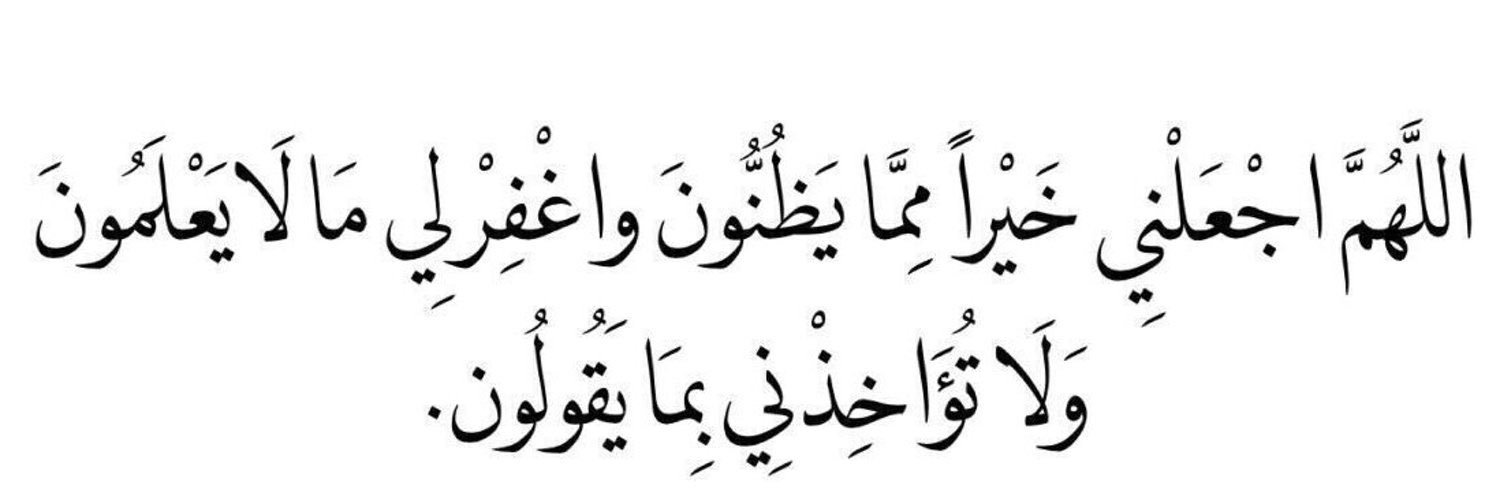 اللَّهُمَّ اجْعَلْنِي خَيْراً مِمَّا يَظُنُّونَ واغْفِرْ لِي مَا لَا يَعْلَمُونَ
وَلَا تُؤَاخِذْنِي بِمَا يَقُولُون.